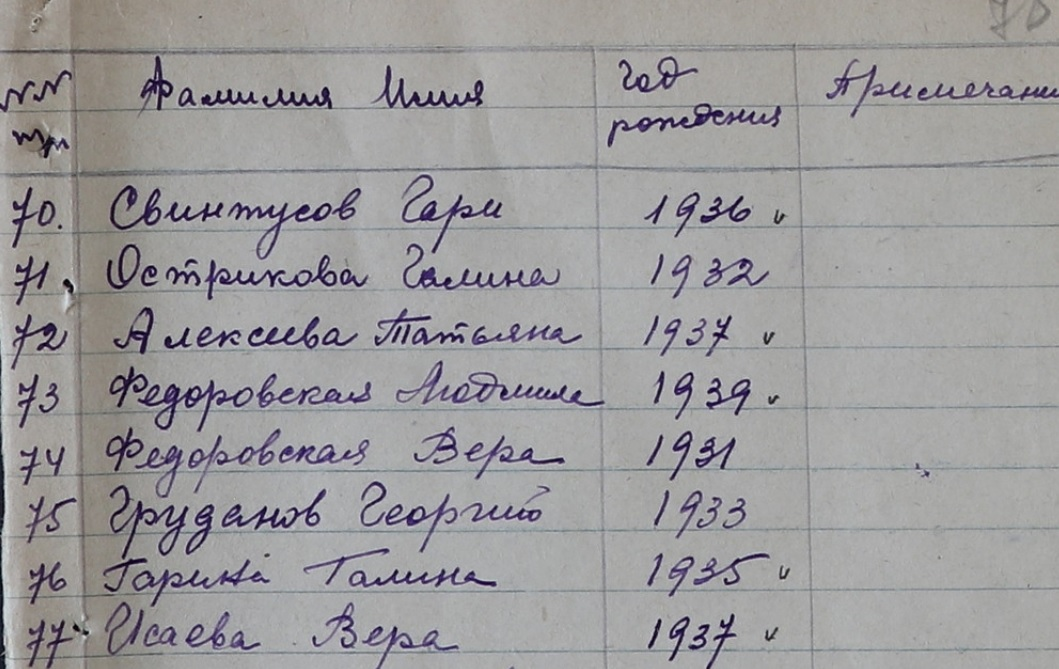 70
NN Фамилия Имя Год Примечани
пп рождения
70. Свинтусов Гари 1936 v
71. Острикова Галина 1932
72 Алексеева Татьяна 1937 v
73 Федоровская Людмила 1939 v
74 Федоровская Вера 1931
75 Груданов Георгий 1933
76 Гарина Галина 1935 v
77 Исаева Вера 1937 v